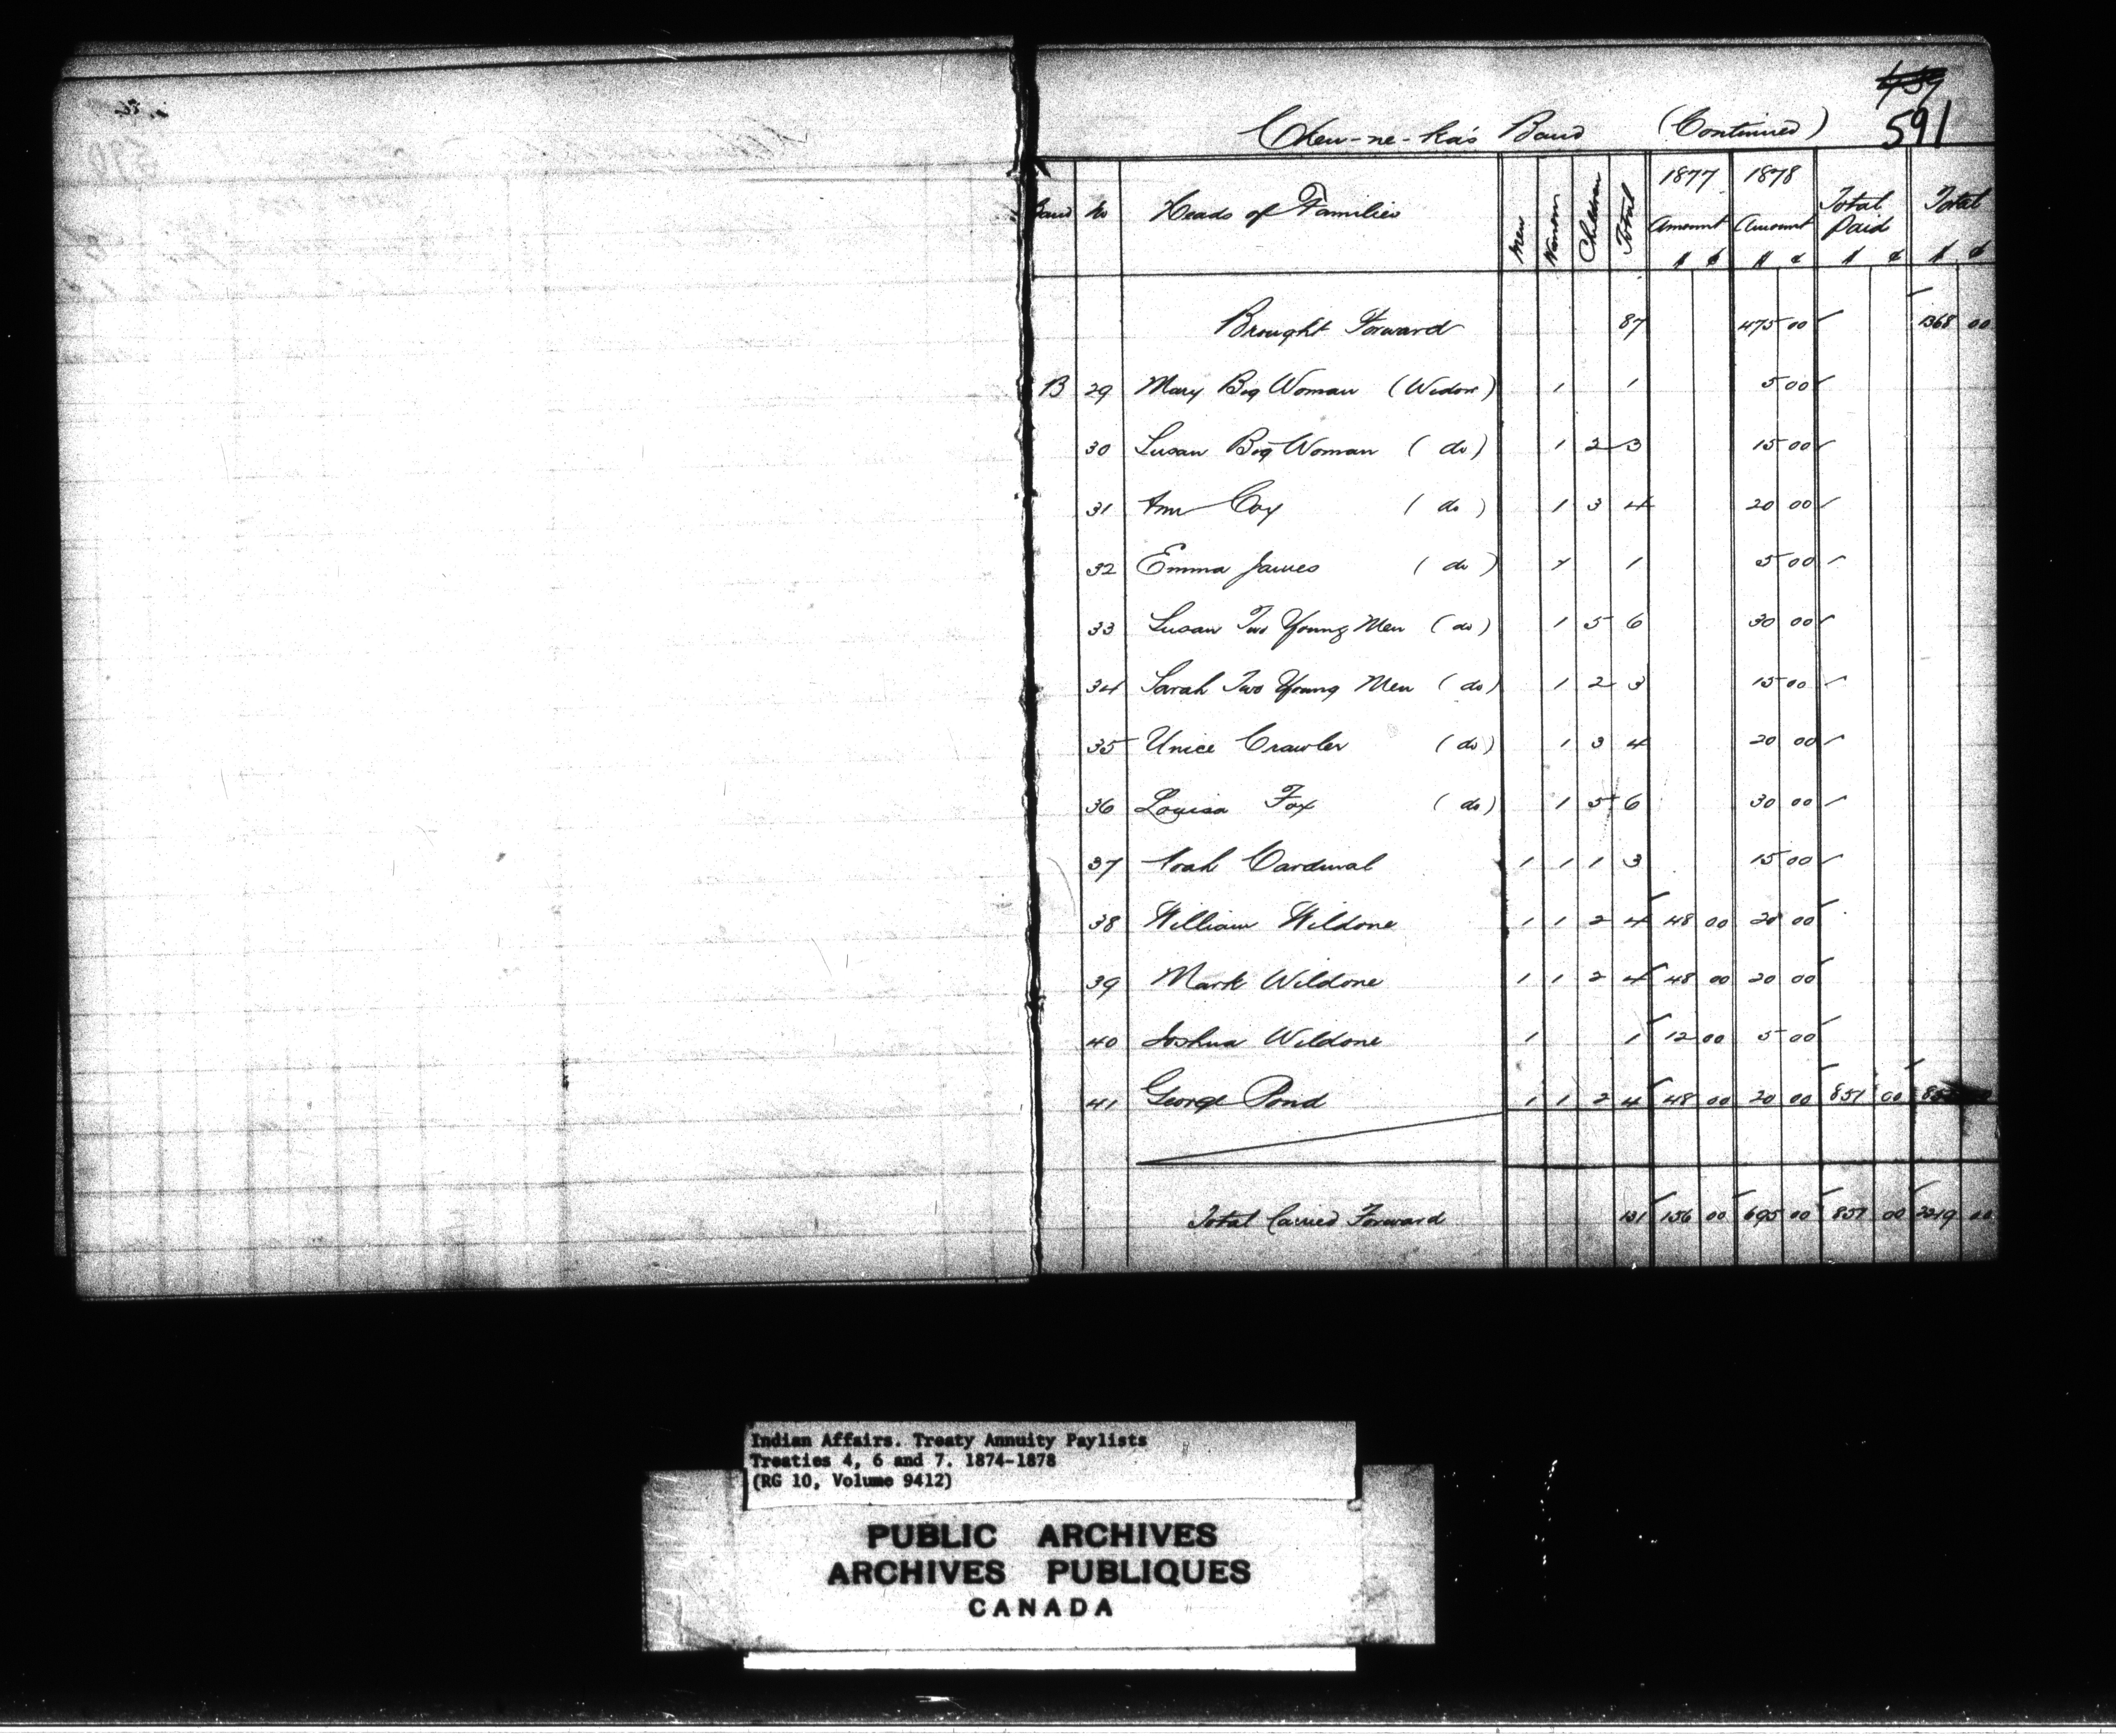 591
Cheu-ne-ka's Band (Continued)
Band No Heads of Families Men Women Children Total 1877 Amount $ ¢ 1878 Amount $ ¢ Total Paid $ ¢ Total $ ¢
Brought Forward 87 475 00 1368 00
B 29 Mary Big Woman (Widow) 1 1 5 00
30 Susan Big Woman (do) 1 2 3 15 00
31 Ann Coy (do) 1 3 4 20 00
32 Emma James (do) 1 1 5 00
33 Susan Two Young Men (do) 1 5 6 30 00
34 Sarah Two Young Men (do) 1 2 3 15 00
35 Unice Crawler (do) 1 3 4 20 00
36 Louisa Fox (do) 1 5 6 30 00
37 Noah Cardinal 1 1 1 3 15 00
38 William Wildone 1 1 2 4 48 00 20 00
39 Mark Wildone 1 1 2 4 48 00 20 00
40 Joshua Wildone 1 1 12 00 5 00
41 George Pond 1 1 2 4 48 00 20 00 851 00
Total Carried Forward 131 156 00 695 00 851 00 2219 00
Indian Affairs. Treaty Annuity Paylists
Treaties 4, 6 and 7. 1874-1878
(RG 10, Volume 9412)
PUBLIC ARCHIVES
ARCHIVES PUBLIQUES
CANADA